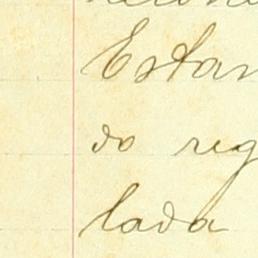 Estan
do reg
lada